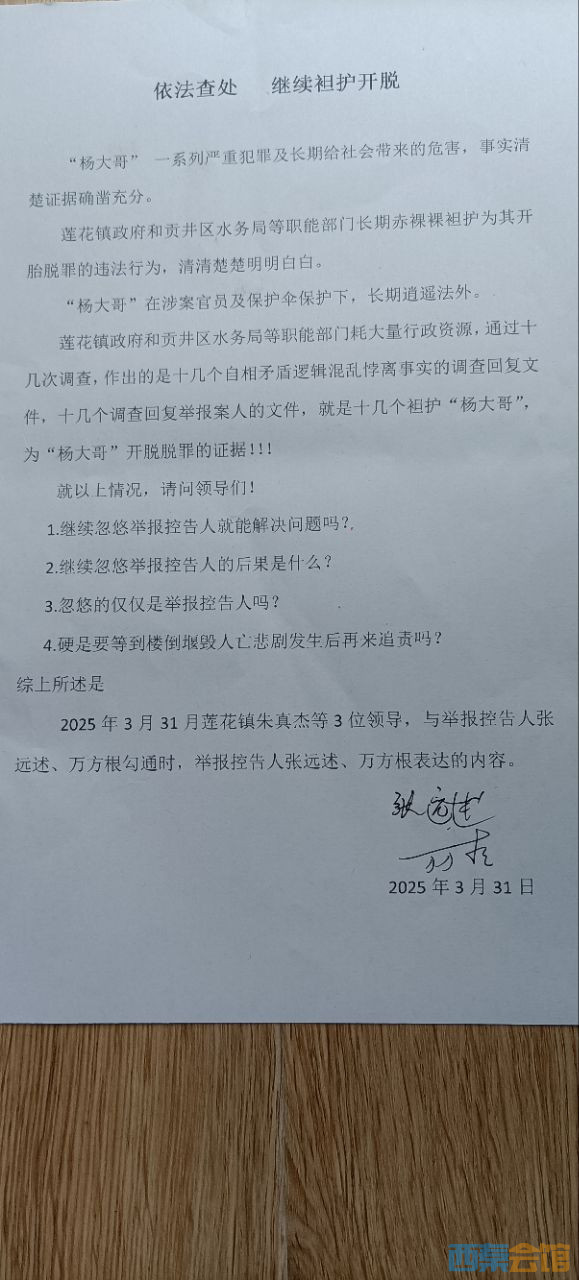 依法查处 继续袒护开脱
“杨大哥” 一系列严重犯罪及长期给社会带来的危害，事实清
楚证据确凿充分。
莲花镇政府和贡井区水务局等职能部门长期赤裸裸袒护为其开
胎脱罪的违法行为，清清楚楚明明白白。
“杨大哥”在涉案官员及保护伞保护下，长期逍遥法外。
莲花镇政府和贡井区水务局等职能部门耗大量行政资源，通过十
几次调查，作出的是十几个自相矛盾逻辑混乱悖离事实的调查回复文
件，十几个调查回复举报案人的文件，就是十几个袒护“杨大哥”，
为“杨大哥”开脱脱罪的证据!!!
就以上情况，请问领导们！
1.继续忽悠举报控告人就能解决问题吗？
2.继续忽悠举报控告人的后果是什么？
3.忽悠的仅仅是举报控告人吗？
4.硬是要等到楼倒堰毁人亡悲剧发生后再来追责吗？
综上所述是
2025 年 3 月 31 月莲花镇朱真杰等 3 位领导，与举报控告人张
远述、万方根勾通时，举报控告人张远述、万方根表达的内容。
张远述
2025 年 3 月 31 日
西秦会馆